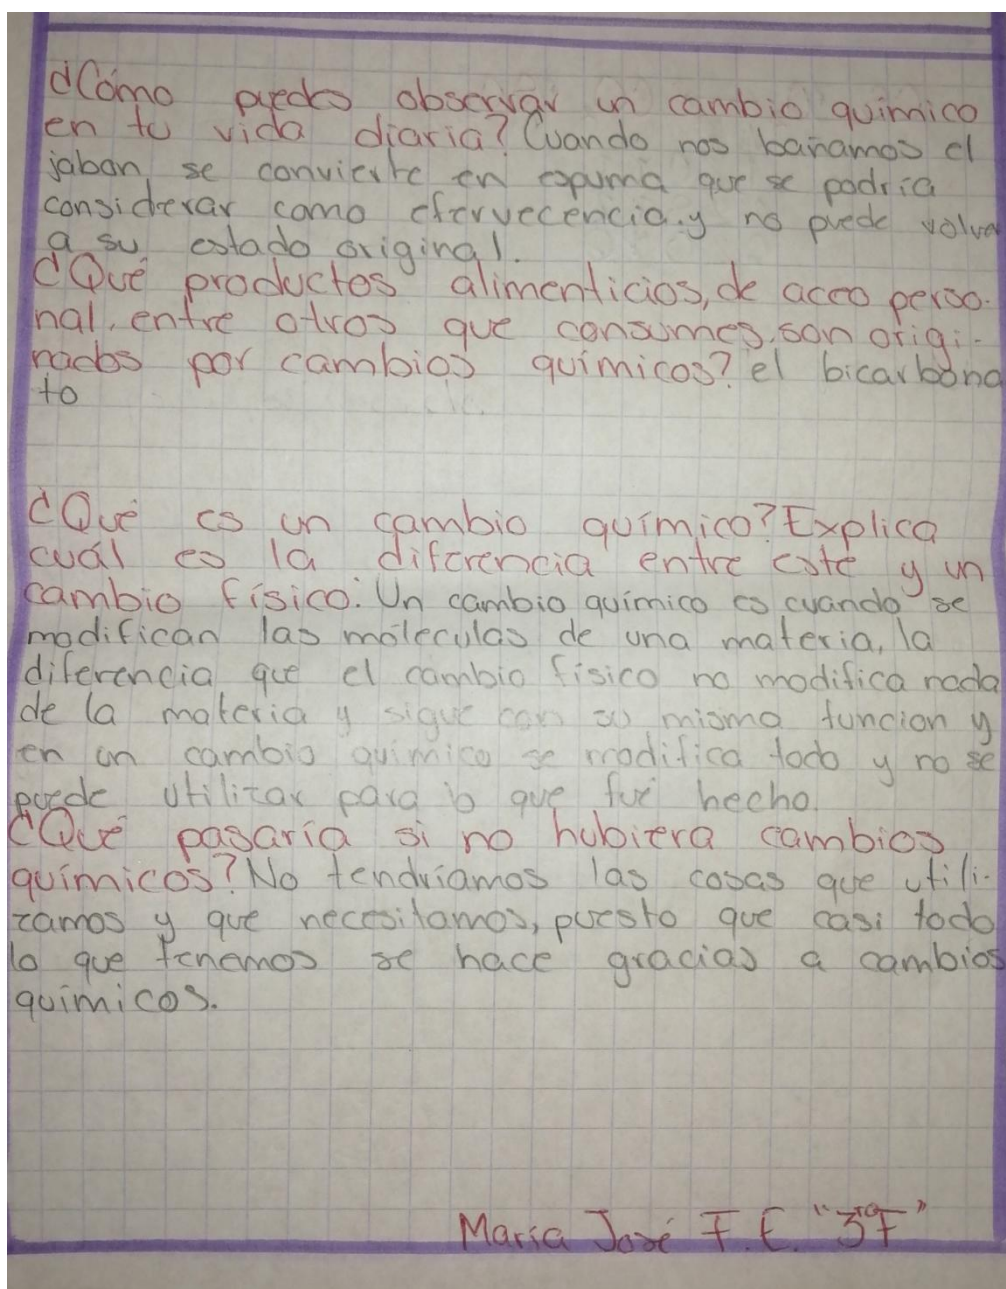 ¿Cómo puedes observar un cambio químico
en tu vida diaria? Cuando nos bañamos el
jabon se convierte en espuma que se podría
considerar como efervecencia y no puede volver
a su estado original.
¿Qué productos alimenticios, de aceo perso-
nal, entre otros que consumes, son origi-
nados por cambios químicos? el bicarbona
to
¿Qué es un cambio químico? Explica
cuál es la diferencia entre este y un
cambio físico: Un cambio químico es cuando se
modifican las moleculas de una materia, la
diferencia que el cambio físico no modifica nada
de la materia y sigue con su misma funcion y
en un cambio quimico se modifica todo y no se
puede utilizar para lo que fué hecho.
¿Qué pasaría si no hubiera cambios
químicos? No tendríamos las cosas que utili-
zamos y que necesitamos, puesto que casi todo
lo que tenemos se hace gracias a cambios
químicos.
María José F.E. "3ro F"